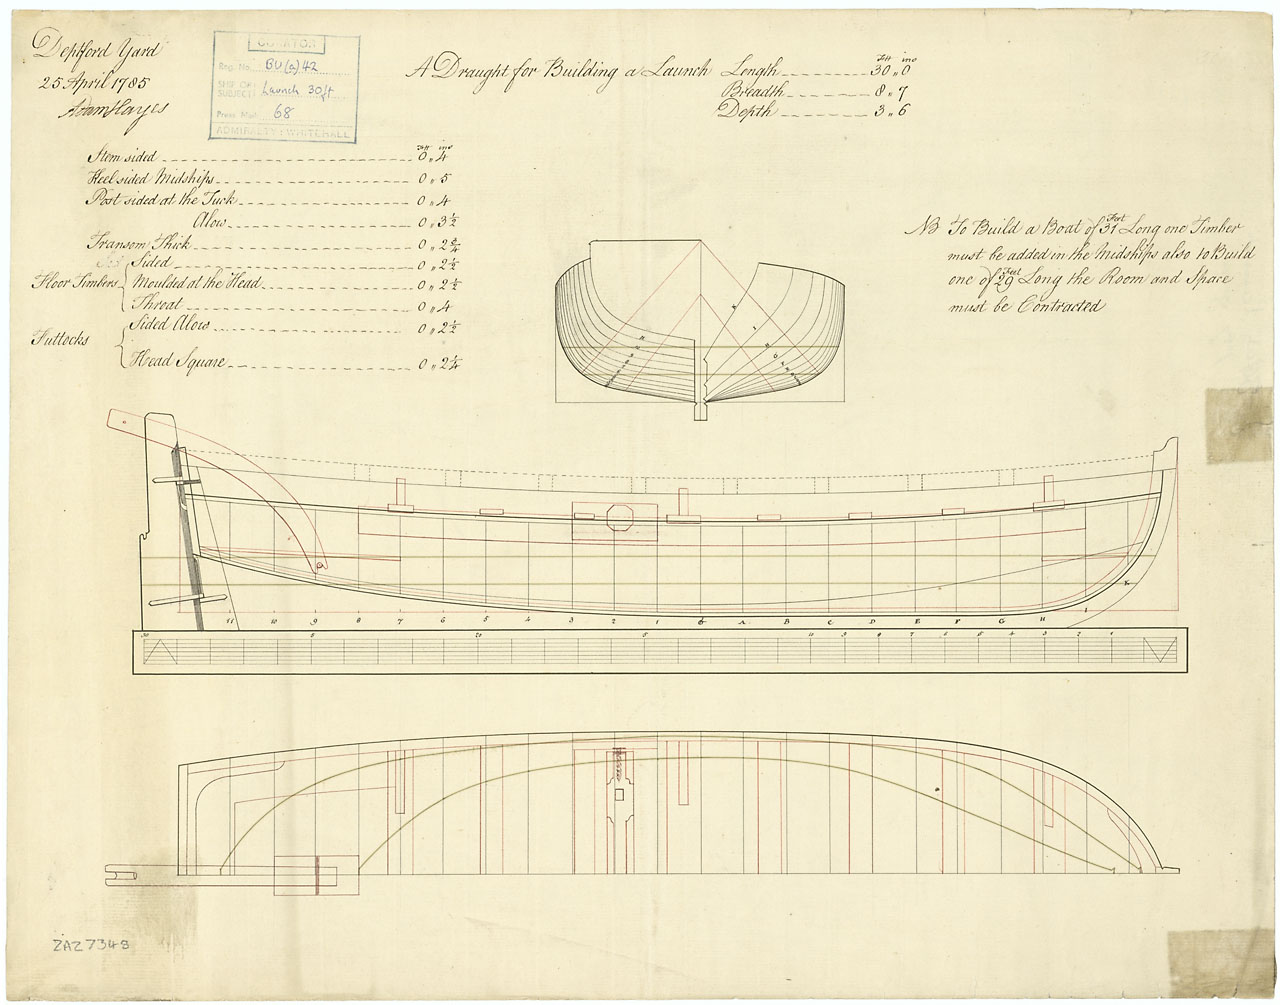 Deptford Yard
25 April 1785
Adam Hayes
CURATOR
Reg. No. BU(a)42
SHIP OR SUBJECT: Launch 30ft
Press Mark 68
ADMIRALTY : WHITEHALL
A Draught for Building a Launch
Ftt ins
Length 30 ,, 0
Breadth 8 ,, 7
Depth 3 ,, 6
Ftt ins
Stem sided 0 ,, 4
Keel sided Midships 0 ,, 5
Post sided at the Tuck 0 ,, 4
Alow 0 ,, 3 1/2
Transom Thick 0 ,, 2 3/4
Floor Timbers { Sided 0 ,, 2 1/2
Moulded at the Head 0 ,, 2 1/2
Throat 0 ,, 4
Futtocks { Sided Alow 0 ,, 2 1/2
Head Square 0 ,, 2 1/4
NB To Build a Boat of 31 Feet Long one Timber
must be added in the Midships also to Build
one of 29 Feet Long the Room and Space
must be Contracted
11 10 9 8 7 6 5 4 3 2 1 A B C D E F G H I K
ZAZ7348